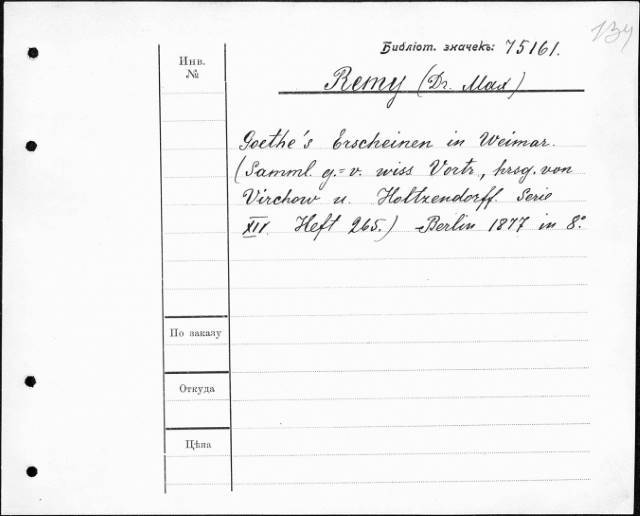 134
Библіот. значекъ: 75161.
Инв.
№
Remy (Dr. Max)
Goethe's Erscheinen in Weimar.
(Samml. g.=v. wiss Vortr., hrsg. von
Virchow u. Holtzendorff. Serie
XII. Heft 265.) - Berlin 1877 in 8.°
По заказу
Откуда
Цѣна